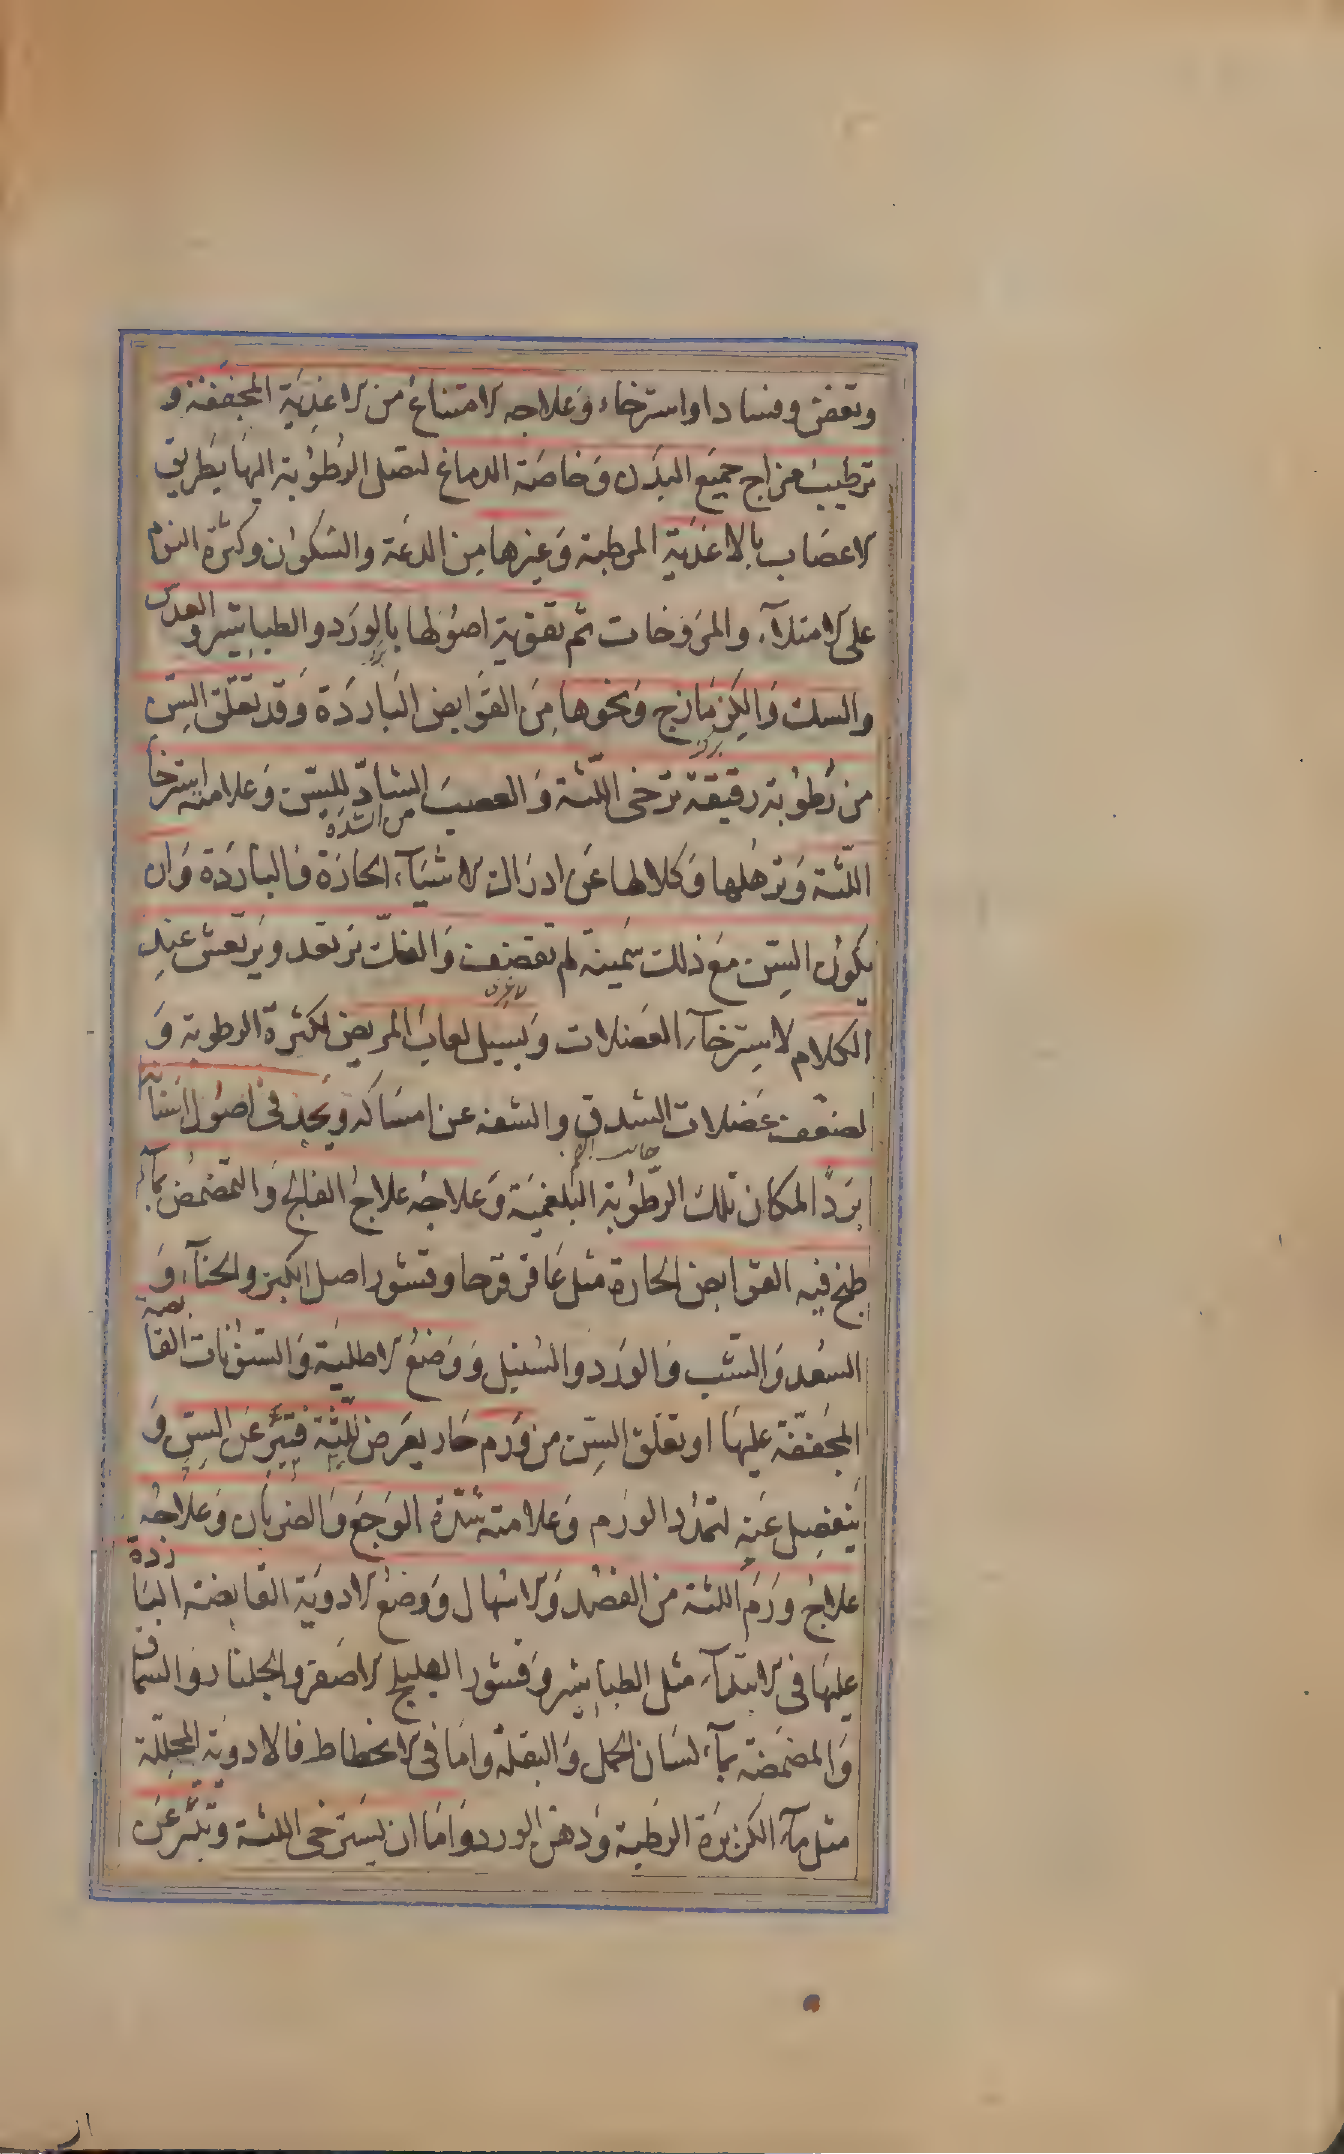 وتعفن وفسادا واسترخاء وعلاجه الامتناع من الاغذية المجففة و
ترطيب مزاج جميع البدن وخاصة الدماغ لتصل الرطوبة اليها بطريق
الاعصاب بالاغذية المرطبة وغيرها من الدعة والسكون وكثرة النوم
على الامتلاء والمروخات ثم تقوية اصولها بالورد والطباشير والعدس
والسك والكزمازج ونحوها من القوابض الباردة وقد تقلق السن
من رطوبة رقيقة ترخى اللثة والعصب الشاد للسن وعلامته استرخا
من الشدة
اللثة وترهلها وكلالها عن ادراك الاشياء الحارة والباردة وان
يكون السن مع ذلك سمينة لم تقضف والفك ترتعد ويرتعش عند
لاغرى
الكلام لاسترخاء العضلات ويسيل لعاب المريض لكثرة الرطوبة و
لضعف عضلات الشدق والشفة عن امساكه ويجد فى اصول اسنانه
جانب الفم
بردا لمكان تلك الرطوبة البلغمية وعلاجه علاج الفالج والتمضمض بماء
طبخ فيه القوابض الحارة مثل عاقرقرحا وقشور اصل الكبر والحناء و
السعد والشب والورد والسنبل ووضع الاطلية والسنونات القابضة
المجففة عليها او تقلق السن من ورم حار يعرض للثة فتتبر عن السن و
ينفصل عنه لتمدد الورم وعلامته شدة الوجع والضربان وعلاجه
علاج ورم اللثة من الفصد والاسهال ووضع الادوية القابضة الباردة
عليها فى الابتداء مثل الطباشير وقشور الهليلج الاصفر والجلنار والسماق
والمضمضة بماء لسان الحمل والبقلة واما فى الانحطاط فالادوية المحللة
مثل ماء الكزبرة الرطبة ودهن الورد واما ان يسترخى اللثة وتتبر عن
از